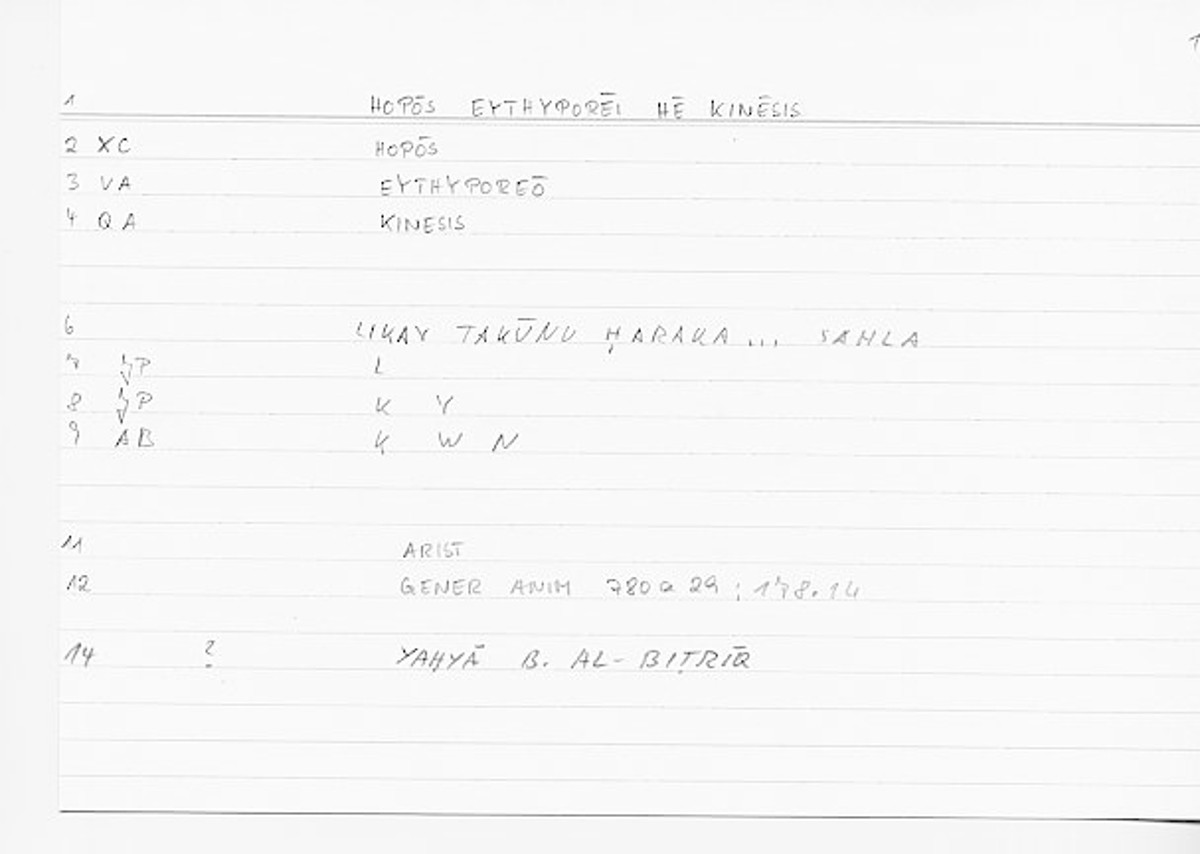 1 HOPŌS EYTHYPORĒI HĒ KINĒSIS
2 XC HOPŌS
3 VA EYTHYPOREŌ
4 QA KINESIS
6 LIKAY TAKŪNU ḤARAKA ... SAHLA
7 P L
8 P K Y
9 AB K W N
11 ARIST
12 GENER ANIM 780 a 29 ; 178.14
14 ? YAḤYĀ B. AL-BIṬRĪQ